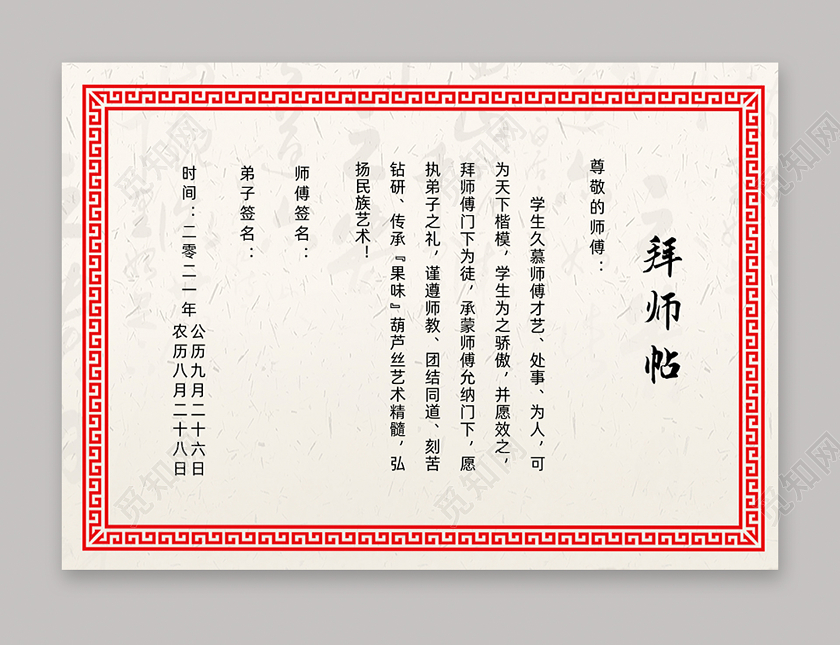 拜师帖
尊敬的师傅：
学生久慕师傅才艺、处事、为人，可
为天下楷模，学生为之骄傲，并愿效之，
拜师傅门下为徒，承蒙师傅允纳门下，愿
执弟子之礼，谨遵师教、团结同道、刻苦
钻研、传承『果味』葫芦丝艺术精髓，弘
扬民族艺术！
师傅签名：
弟子签名：
时间：二零二一年
公历九月二十六日
农历八月二十八日
觅知网
觅知网
觅知网
觅知网
觅知网
觅知网